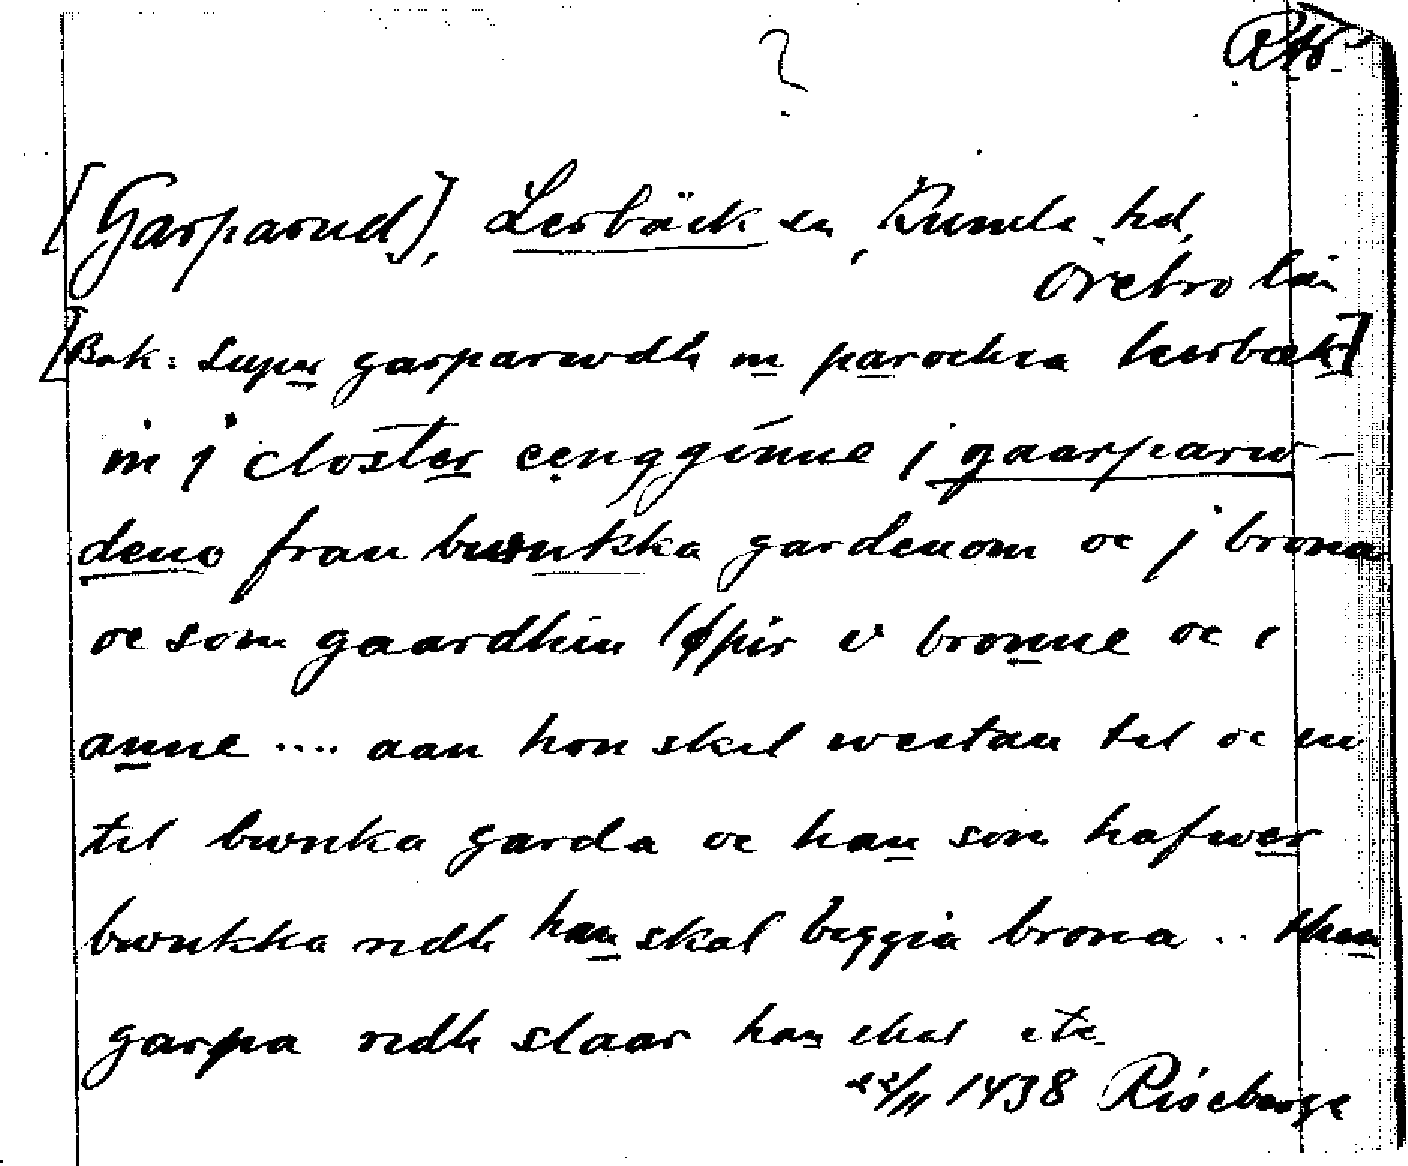 ?
[Garparud], Lerbäck sn, Kumla hd,
Örebro län
[Bak: super garparwdh in parochia lerbæk]
in j closter eengginne j gaarparw-
deno fran bwnkka gardenom oc j brona
oc som gaardhin løpir v bronne oc i
anne .... aan hon skel westan til oc in
til bwnka garda oc han som hafwer
bwnkka rudh han skal byggia brona .. then
garpa rudh slaar han skal etc
22/11 1438 Riseberga